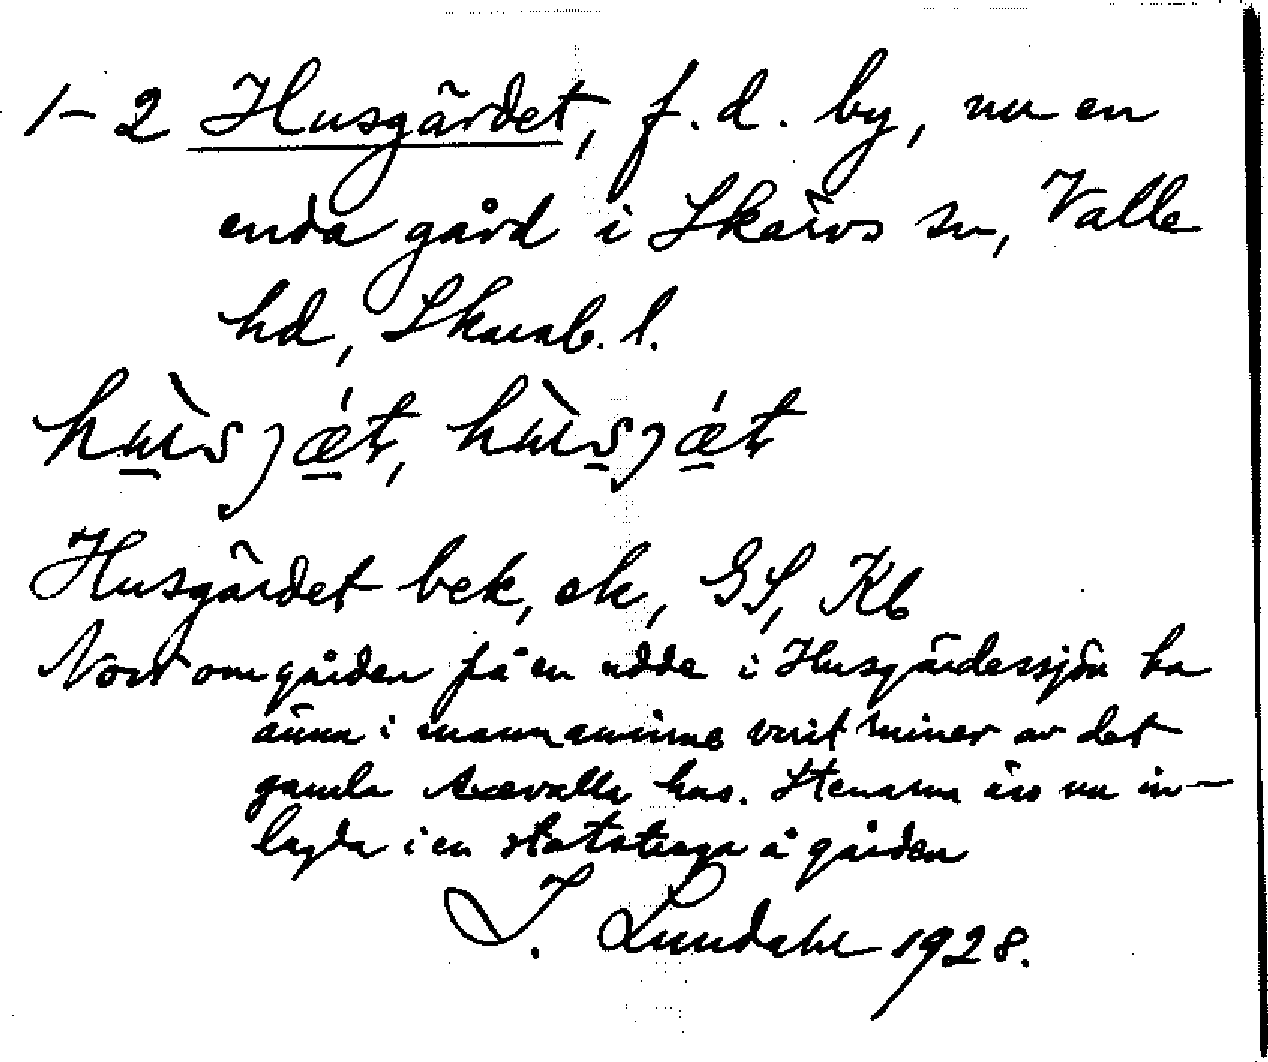 1–2 Husgärdet, f. d. by, nu en
enda gård i Skärvs sn, Valle
hd, Skarab. l.
Husgärdet bek, ek, GS, Kb
Norr om gården på en udde i Husgärdessjön ha
ännu i mannaminne varit ruiner av det
gamla Axevalla hus. Stenarna äro nu in-
lagda i en statstuga å gården
I. Lundahl 1928.